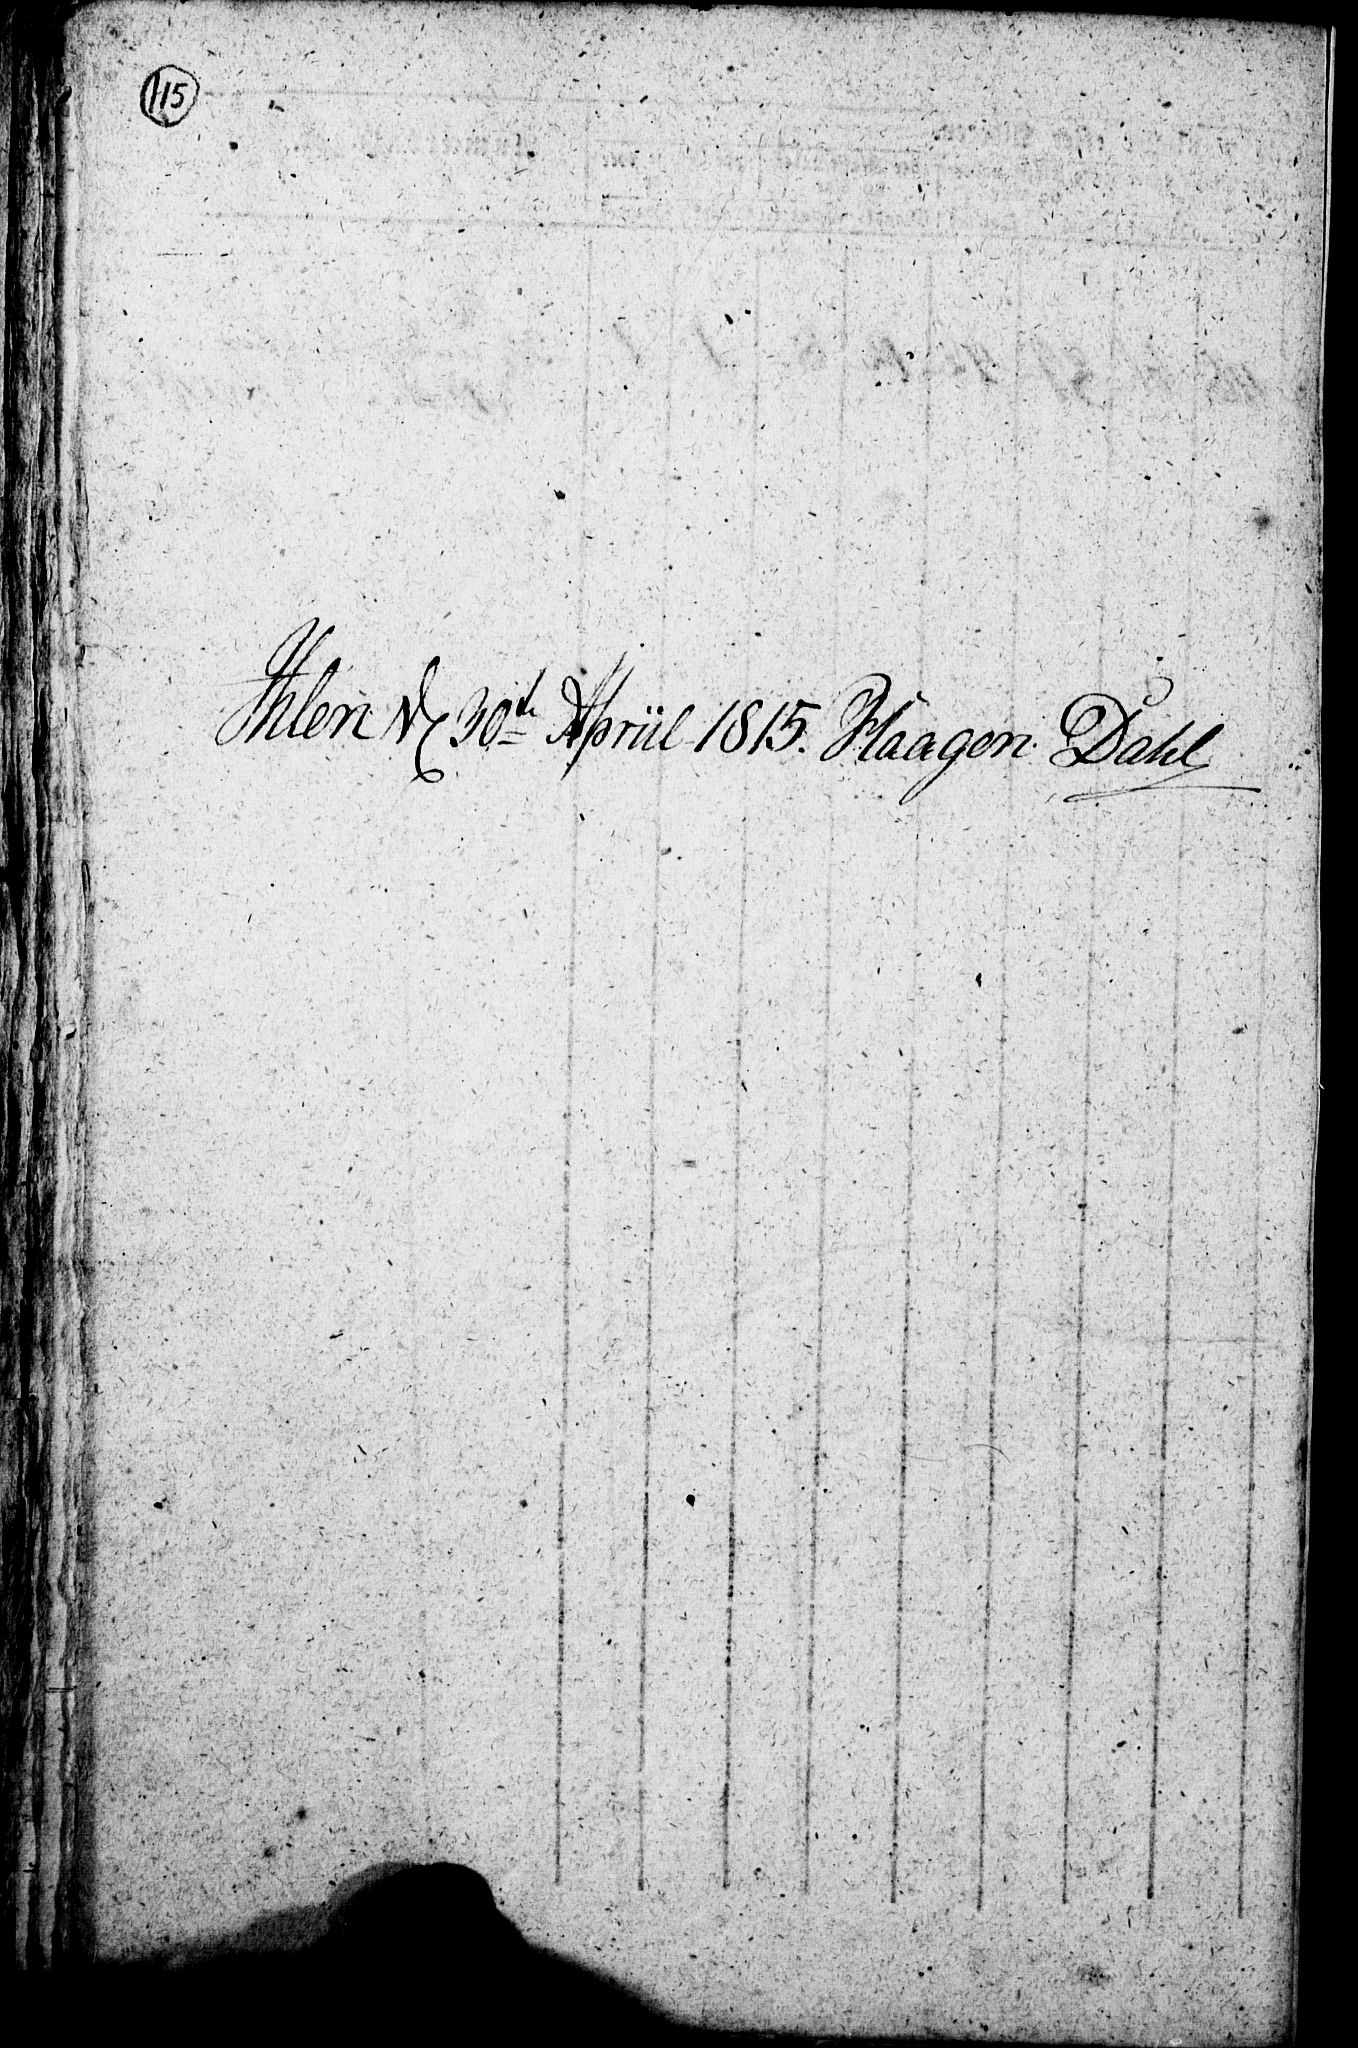 115
Ihlen d 30th Apriil 1815. Haagen Dahl